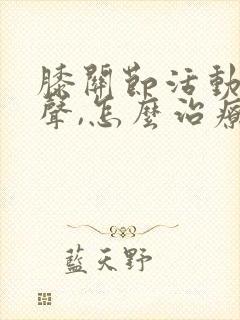 膝關節活動
聲,怎麼治療
藍天野